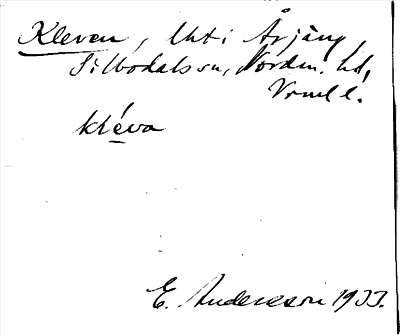 Kleven, Uht i Årjäng,
Silbodals sn, Nordm. hd,
Vrml l.
kléva
E. Andersson 1933.